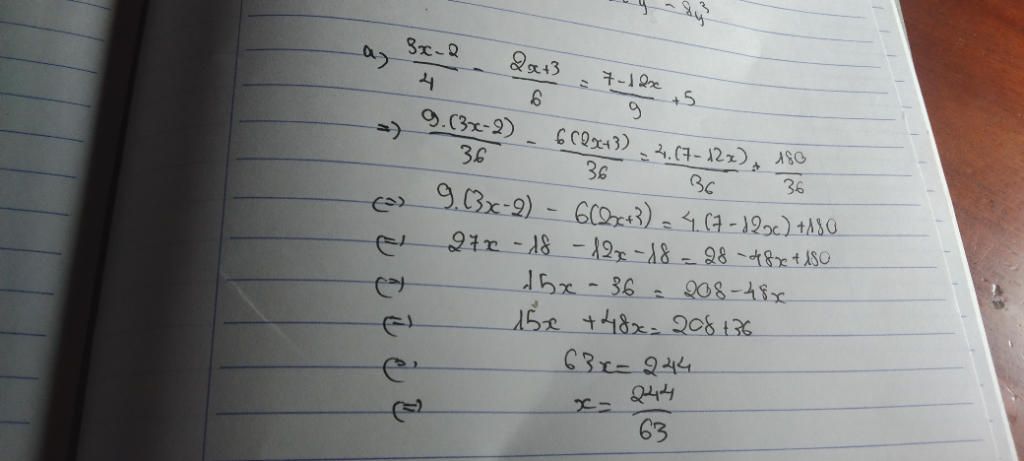 a) (3x-2)/4 - (2x+3)/6 = (7-12x)/9 + 5
=> 9.(3x-2)/36 - 6(2x+3)/36 = 4.(7-12x)/36 + 180/36
<=> 9.(3x-2) - 6(2x+3) = 4.(7-12x)+180
<=> 27x - 18 - 12x - 18 = 28 - 48x + 180
<=> 15x - 36 = 208 - 48x
<=> 15x + 48x = 208 + 36
<=> 63x = 244
<=> x = 244/63